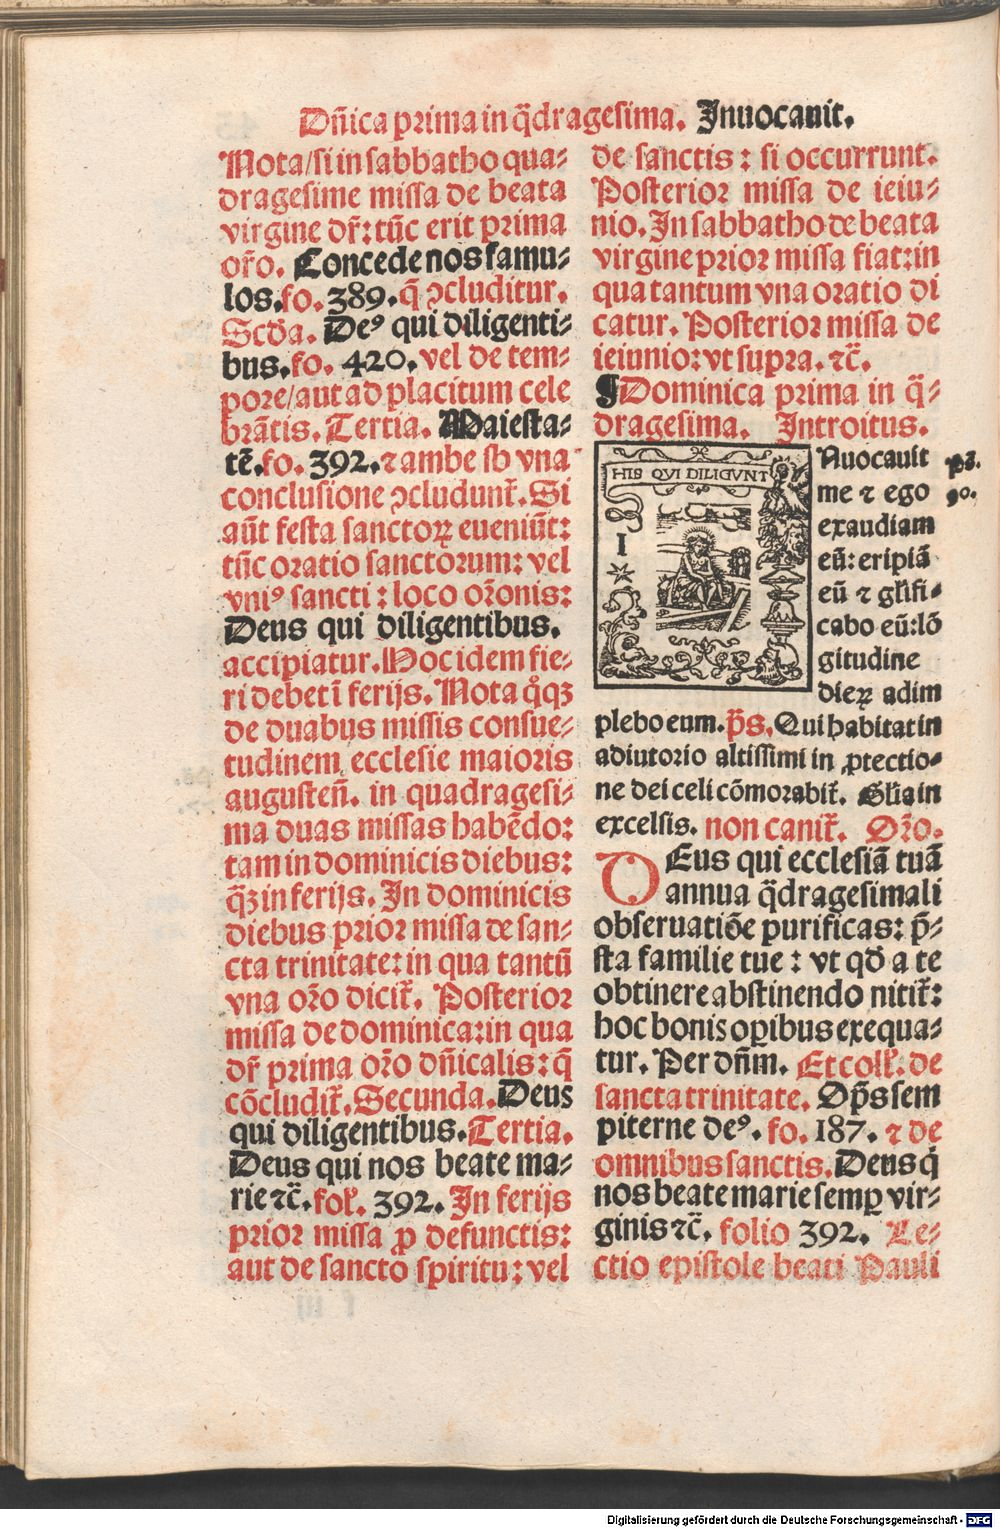 Dn̄ica prima in q̄dragesima. Inuocauit.
Nota/si in sabbatho qua⸗
dragesime missa de beata
virgine dr̄: tūc erit prima
oro̅. Concede nos famu⸗
los. fo. 389. q̄ ꝯcluditur.
Scd̄a. De⁹ qui diligenti⸗
bus. fo. 420. vel de tem⸗
pore/aut ad placitum cele
brātis. Tertia. Maiesta⸗
tē. fo. 392. ⁊ ambe sb vna
conclusione ꝯcludunt̄. Si
aūt festa sanctoꝝ eueniūt:
tūc oratio sanctorum: vel
vni⁹ sancti: loco oro̅nis:
Deus qui diligentibus.
accipiatur. Hoc idem fie⸗
ri debet ī ferijs. Nota q̊qꝫ
de duabus missis consue⸗
tudinem ecclesie maioris
augusten̄. in quadragesi⸗
ma duas missas habēdo:
tam in dominicis diebus:
q̄ꝫ in ferijs. In dominicis
diebus prior missa de san⸗
cta trinitate: in qua tantū
vna oro̅ dicit̄. Posterior
missa de dominica: in qua
dr̄ prima oro̅ dn̄icalis: q̄
cōcludit̄. Secunda. Deus
qui diligentibus. Tertia.
Deus qui nos beate ma⸗
rie ⁊c̄. fol̄. 392. In ferijs
prior missa ꝓ defunctis:
aut de sancto spiritu: vel
de sanctis: si occurrunt.
Posterior missa de ieiu⸗
nio. In sabbatho de beata
virgine prior missa fiat: in
qua tantum vna oratio di
catur. Posterior missa de
ieiunio: vt supra. ⁊c̄.
¶ Dominica prima in q̄⸗
dragesima. Introitus.
HIS QVI DILIGVNT
I
Nuocauit
me ⁊ ego
exaudiam
eū: eripiā
eū ⁊ gl̄ifi⸗
cabo eū: lō
gitudine
dieꝝ adim
ps.
90.
plebo eum. p̄s. Qui habitat in
adiutorio altissimi in ꝓtectio⸗
ne dei celi cōmorabit̄. Gl̄ia in
excelsis. non canit̄. Oro̅.
DEus qui ecclesiā tuā
annua q̄dragesimali
obseruatiōe purificas: p̄⸗
sta familie tue: vt qd̄ a te
obtinere abstinendo nitit̄:
hoc bonis oꝑibus exequa⸗
tur. Per dn̄m. Et coll̄. de
sancta trinitate. Op̄s sem
piterne de⁹. fo. 187. ⁊ de
omnibus sanctis. Deus q̇
nos beate marie semꝑ vir⸗
ginis ⁊c̄. folio 392. Le⸗
ctio epistole beati Pauli
Digitalisierung gefördert durch die Deutsche Forschungsgemeinschaft - DFG